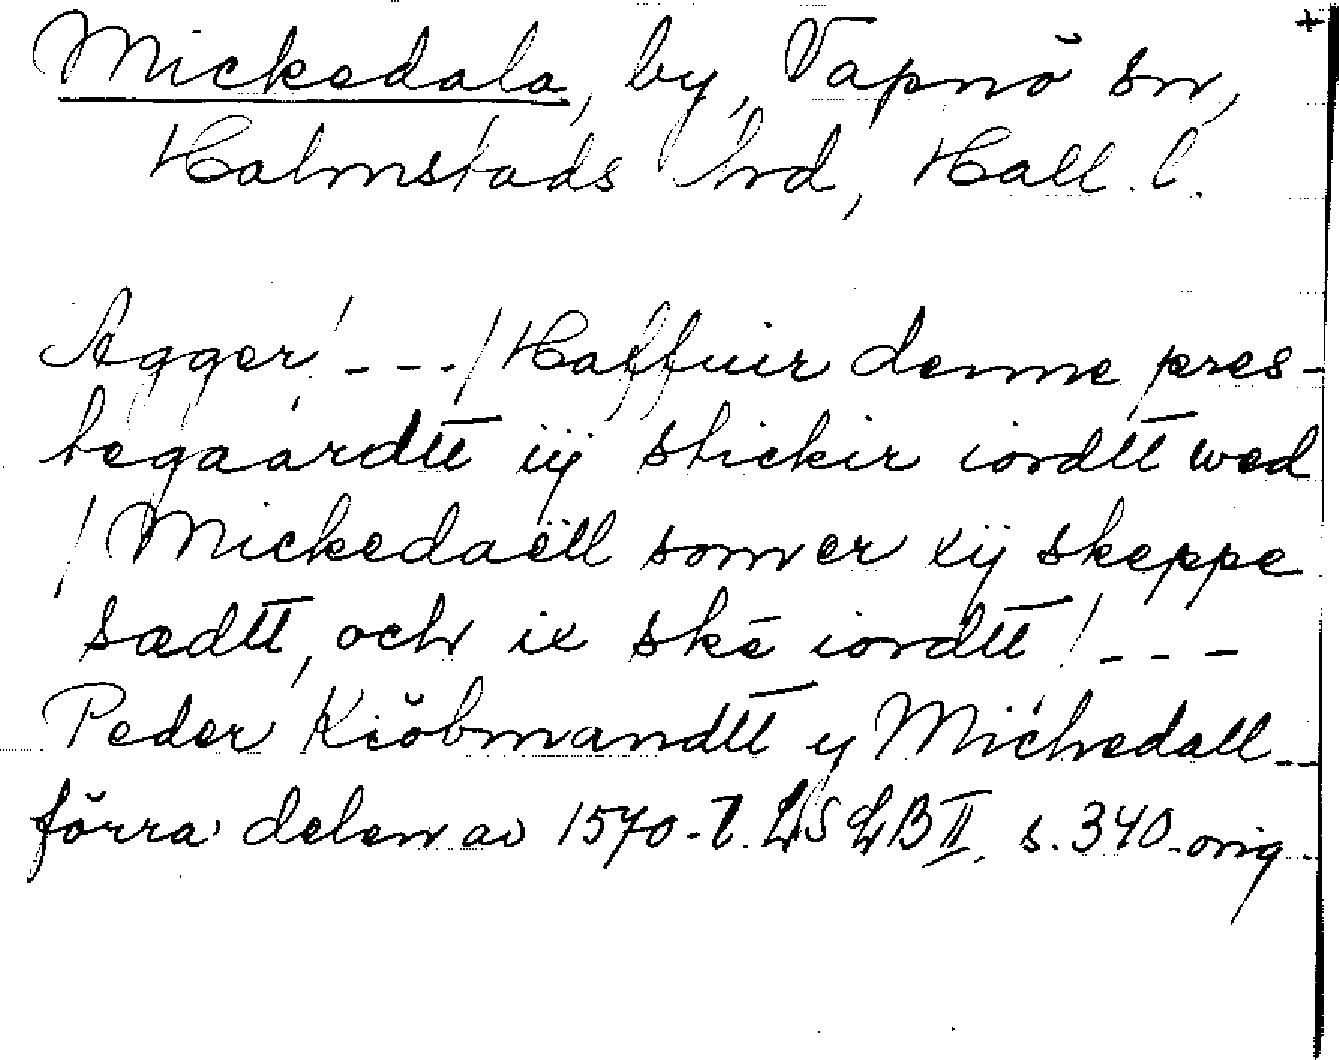 +
Mickedala, by, Vapnö sn,
Halmstads hrd, Hall. l.
Agger / - - - / Haffuir denne pres-
tegaardtt iij stickir iordtt wed
/ Mickedaëll som er xij skeppe
sædtt, och ix skē iordtt / - - -
Peder Kiöbmandtt ÿ Michedall --
förra delen av 1570-t. LSLB II, s. 340 orig.